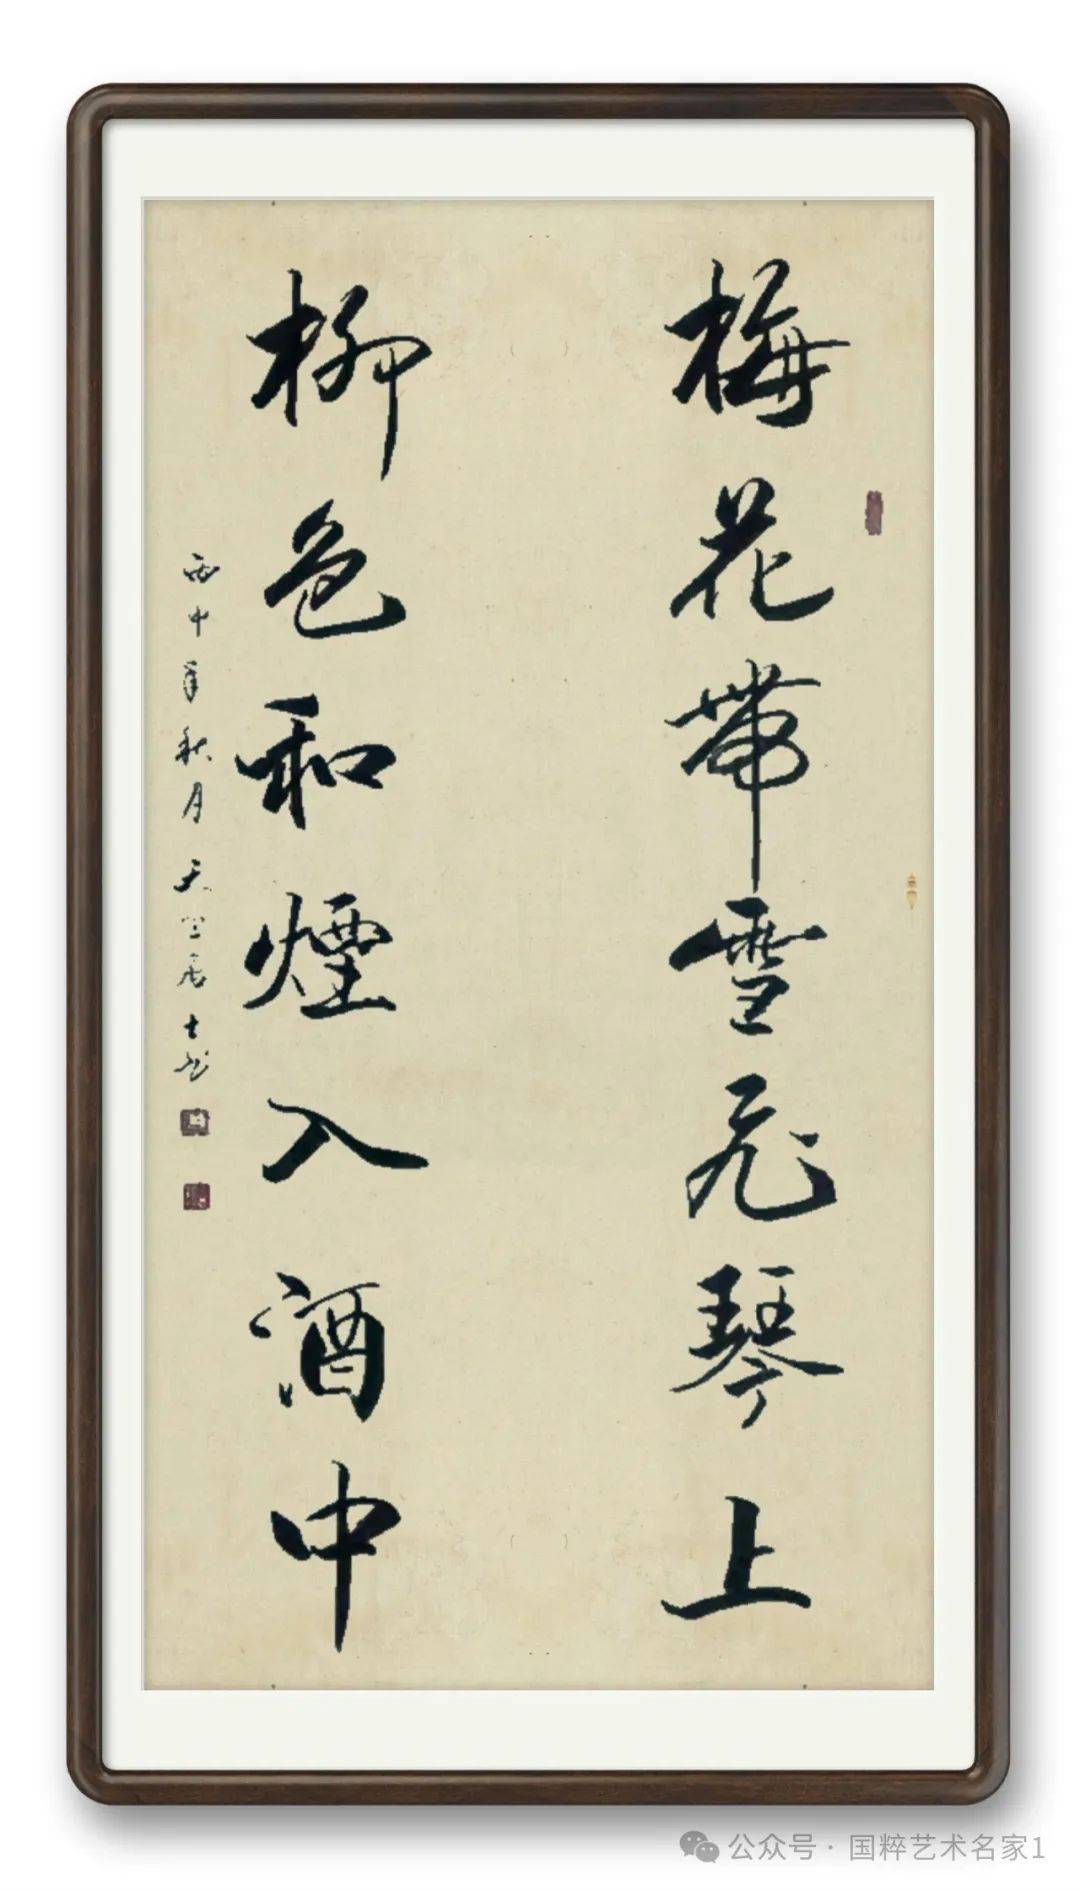 梅花带雪飞琴上
柳色和煙入酒中
丙申年秋月天空居士书
公众号·国粹艺术名家1